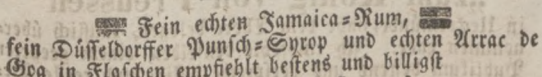 Fein echten Jamaica=Rum,
fein Düsseldorffer Punsch=Syrop und echten Arrac de
Goa in Flaschen empfiehlt bestens und billigst